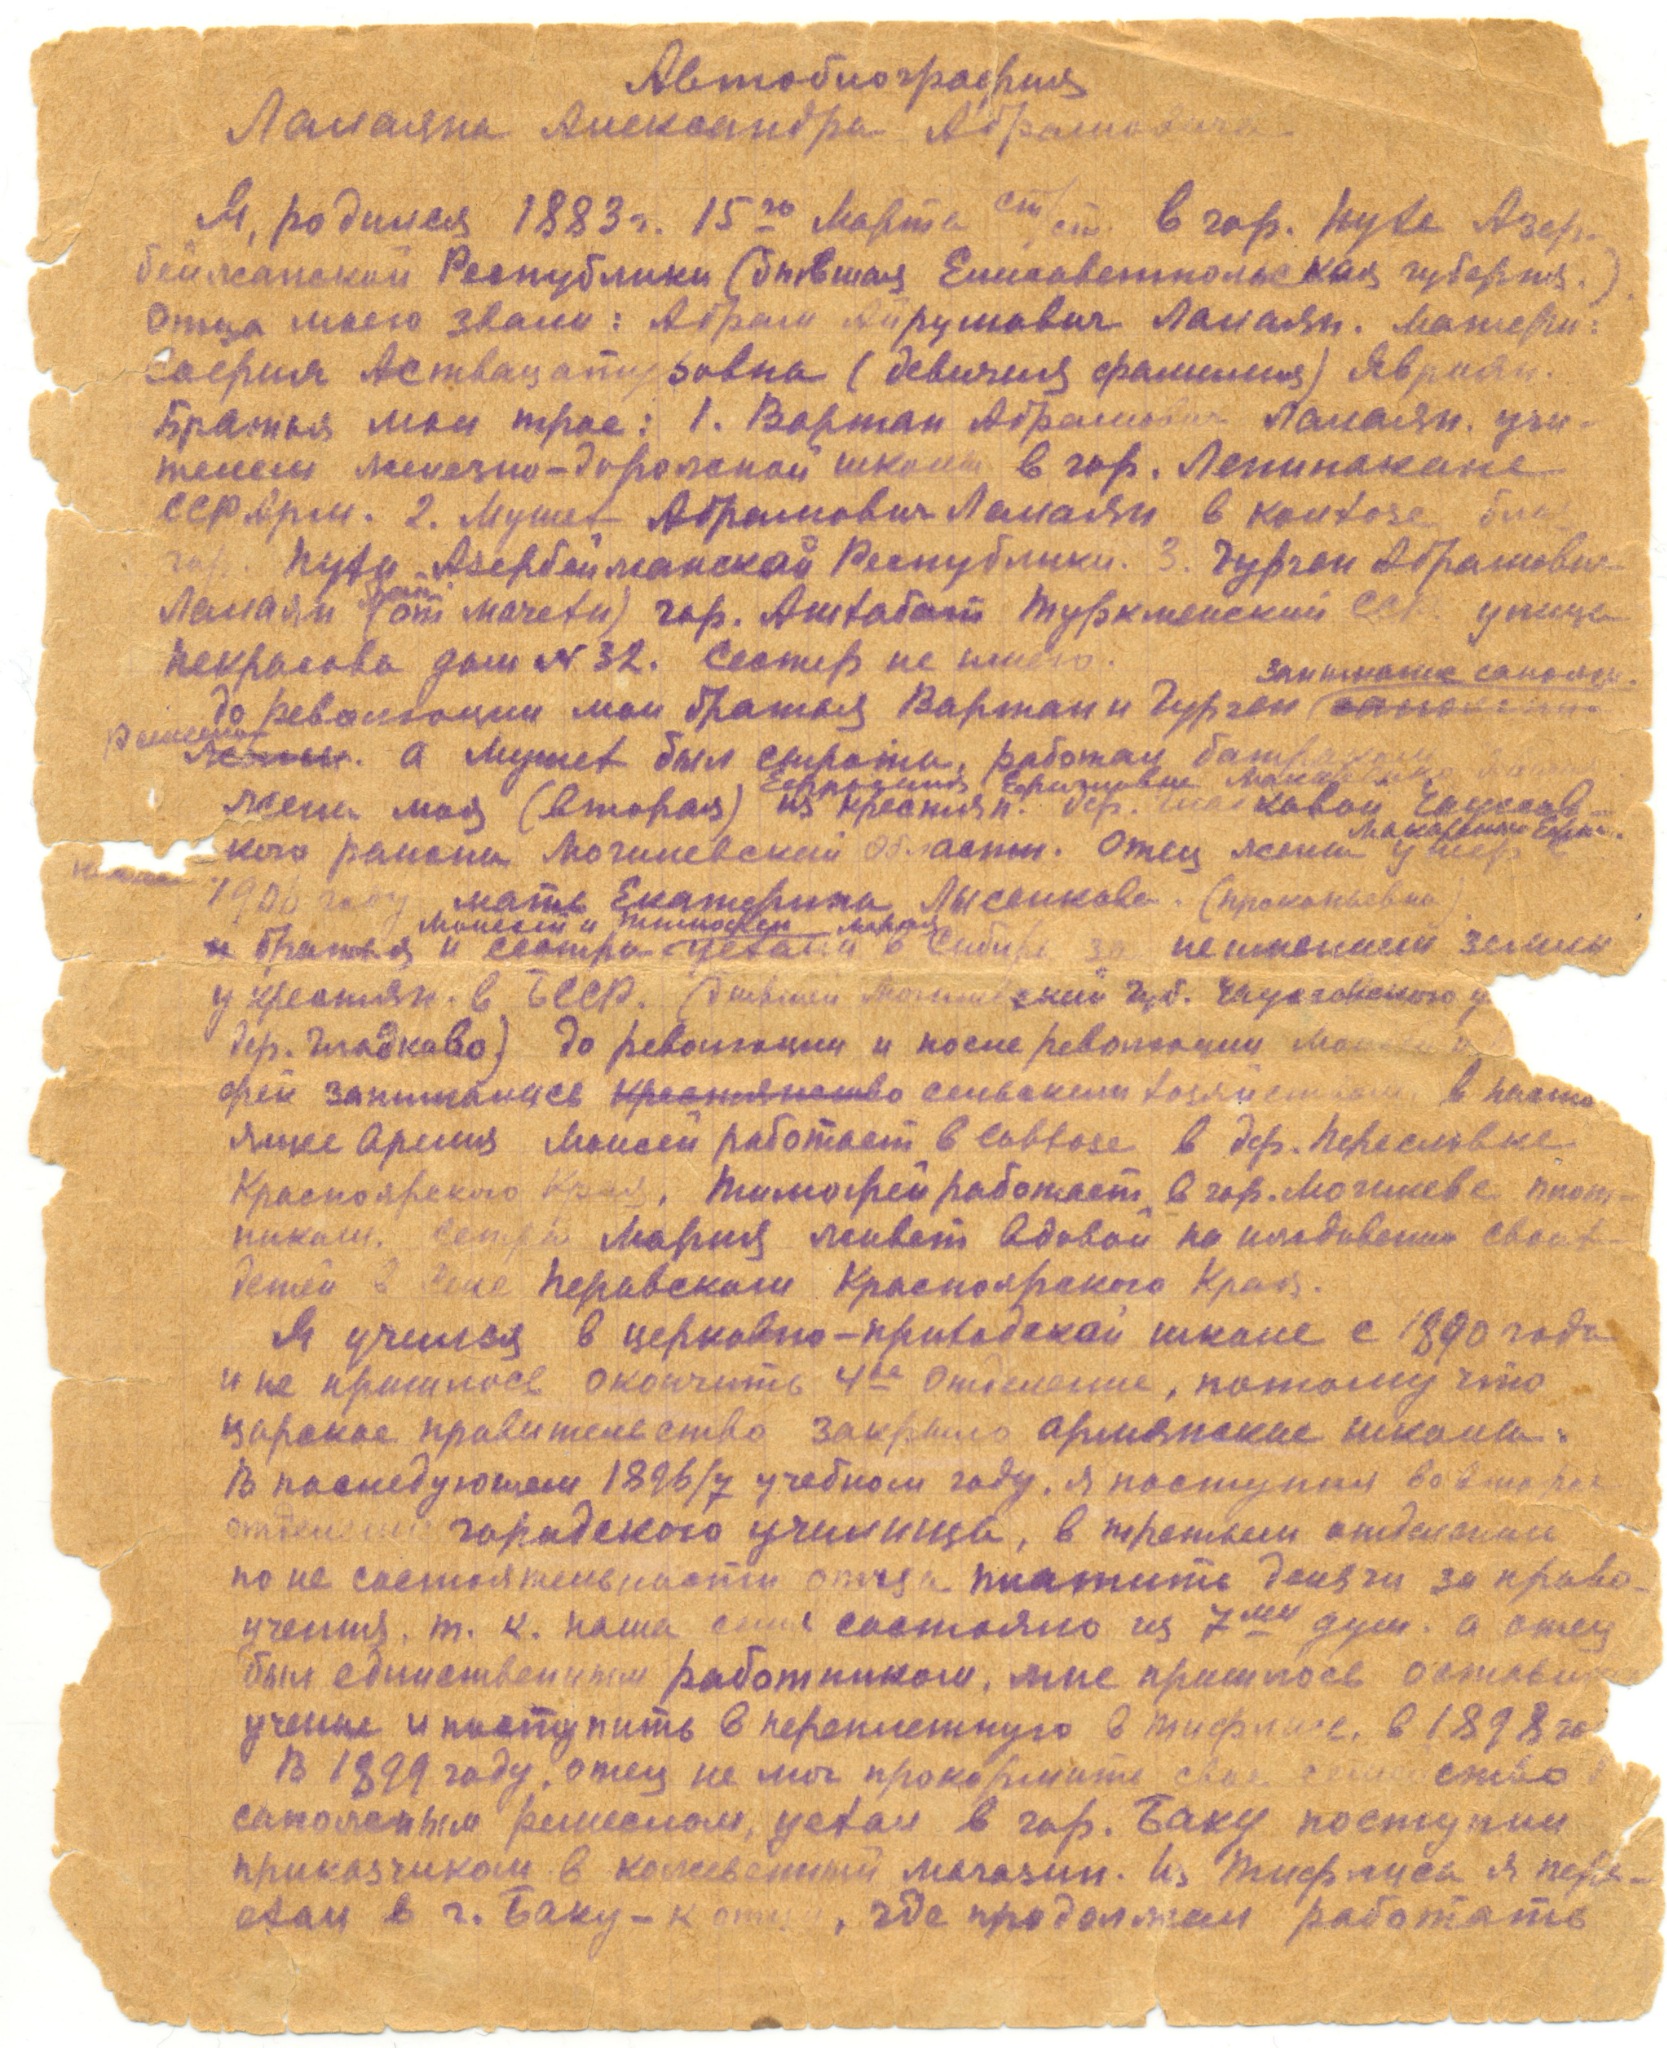 Автобиография
Ламаяна Александра Абрамовича
Я, родился 1883 г. 15го Марта ст/ст. в гор. Нухе Азер-
бейжанской Республики (бывшая Елисаветпольская губерния.)
Отца моего звали: Абрам Айрумович Ламаян. Матери:
София Аствацатуровна (девичия фамилия) Явриян.
Братья мои трое: 1. Вартан Абрамович Ламаян. учи-
телем железно-дорожной школы в гор. Ленинакане
ССР Арм. 2. Мушег Абрамович Ламаян в колхозе близ
гор. Нухи Азербейжанской Республики. 3. Гурген Абрамович
Ламаян (от мачехи) гор. Ашхабат Туркменский ССР улица
Некрасова дом № 32. Сестер не имею.
занимались сапожн.
До революции мои братья Вартан и Гурген
ремеслом
. а Мушет был сирота, работал батраком
Ефросиния Ермиовна
жена моя (вторая) из крестьян. дер. Чаусов-
ского района Могилевский области. Отец жены умер в
1900 году мать Екатерина Лысенкова. (Прокопьевна)
Моисей и Тимофей Мария
и братья и сестра уехали в Сибирь за неимением земли
у крестьян. в БССР. (бывшей Могилевский Губ. Чаусовского у
дер. Гладково) До революции и после революции Моисей и
фей занимались крестьянство сельским хозяйством, в насто
ящее время Моисей работает в совхозе в дер. Переславке
Красноярского Края, Тимофей работает в гор. Могилеве плот-
ником. сестра Мария живет вдовой на иждивении своих
детей в селе Перавском Красноярского Края.
Я учился в церковно-приходской школе с 1890 года
и не пришлось окончить 4ое отделение, потому что
царское правительство закрыло армянские школы.
В последующем 1896/7 учебном году, я поступил во второе
отделение городского училища, в третьем отделении
по не состоятельности отца платить деньги за право-
учения, т. к. наша семя состояло из 7ми душ. а отец
был единственным работником, мне пришлось оставить
учение и поступить в переплетную в Тифлисе, в 1898 го
В 1899 году, отец не мог прокормить свое семейство
сапожным ремеслом, уехал в гор. Баку поступил
приказчиком в кожевенный магазин. Из Тифлиса я пере-
ехал в г. Баку-к отцу, где продолжал работать